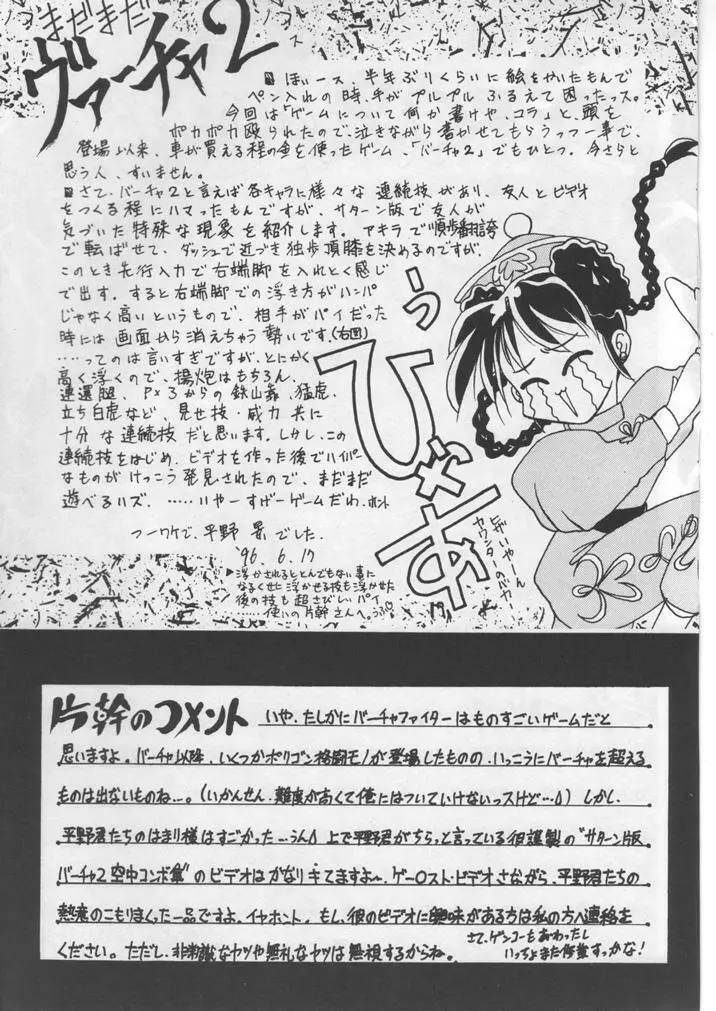 まだまだ
ヴァーチャ2
ほいース、半年ぶりくらいに絵をかいたもんで
ペン入れの時、手がプルプルふるえて困ったっス。
今回は「ゲームについて何か書けや、コラ」と、頭を
ポカポカ殴られたので、泣きながら書かせてもらうっつー事で、
登場以来、車が買える程の金を使ったゲーム、「バーチャ2」でもひとつ。今さらと
思う人、すいません。
さて、バーチャ2と言えば各キャラに様々な連続技があり、友人とビデオ
をつくる程にハマったもんですが、サターン版で友人が
気づいた特殊な現象を紹介します。アキラで順歩翻誇
で転ばせて、ダッシュで近づき独歩頂膝を決めるのですが、
このとき先行入力で右端脚を入れとく感じ
で出す。すると右端脚での浮き方がハンパ
じゃなく高いというもので、相手がパイだった
時には画面から消えちゃう勢いです。(右図)
……ってのは言いすぎですが、とにかく
高く浮くので、揚炮はもちろん、
連還腿、P×3からの鉄山靠、猛虎、
立ち白虎など、見せ技・威力共に
十分な連続技だと思います。しかし、この
連続技をはじめ、ビデオを作った後でハイパー
なものがけっこう発見されたので、まだまだ
遊べるハズ。……いやーすげーゲームだわ、ホント
つーワケで、平野 景でした。
'96.6.17
▶浮かされるととんでもない事に
なるくせに浮かせる技も浮かせた
後の技も超さびしいパイ
……使いの片幹さんへ。うふ♡
うっ
ひゃあ
ヒザいやーん
カウンターのバカ
片幹のコメント
いや、たしかにバーチャファイターはものすごいゲームだと
思いますよ。バーチャ以降、いくつかポリゴン格闘モノが登場したものの、いっこうにバーチャを超える
ものは出ないものね…。(いかんせん、難度が高くて俺にはついていけないっスけど…)しかし、
平野君たちのはまり様はすごかった…うん 上で平野君がちらっと言っている彼謹製の"サターン版
バーチャ2空中コンボ集"のビデオはかなりキてますよ〜、ゲー○スト・ビデオさながら、平野君たちの
熱意のこもりまくった一品ですよ、イヤホント。もし、彼のビデオに興味がある方は私の方へ連絡を
ください。ただし、非常識なヤツや無礼なヤツは無視するからね。
さて、ゲンコーもあがったし
いっちょまた修業すっかな!